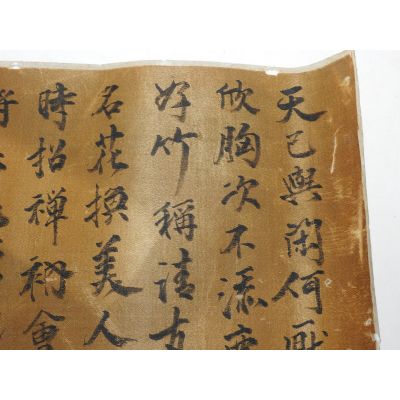 天已與閑何厭
攸胸次不添
好竹稱清友
名花換美人
時招禪衲會